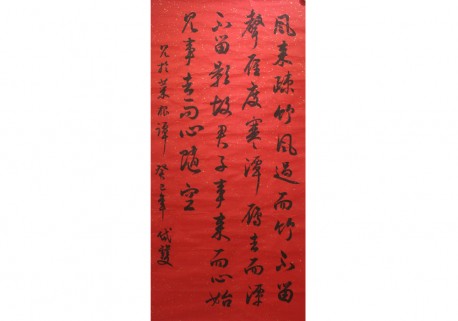 風来疎竹風過而竹不留
聲雁度寒潭雁去而潭
不留影故君子事来而心始
見事去而心随空
見於菜根譚 癸巳年